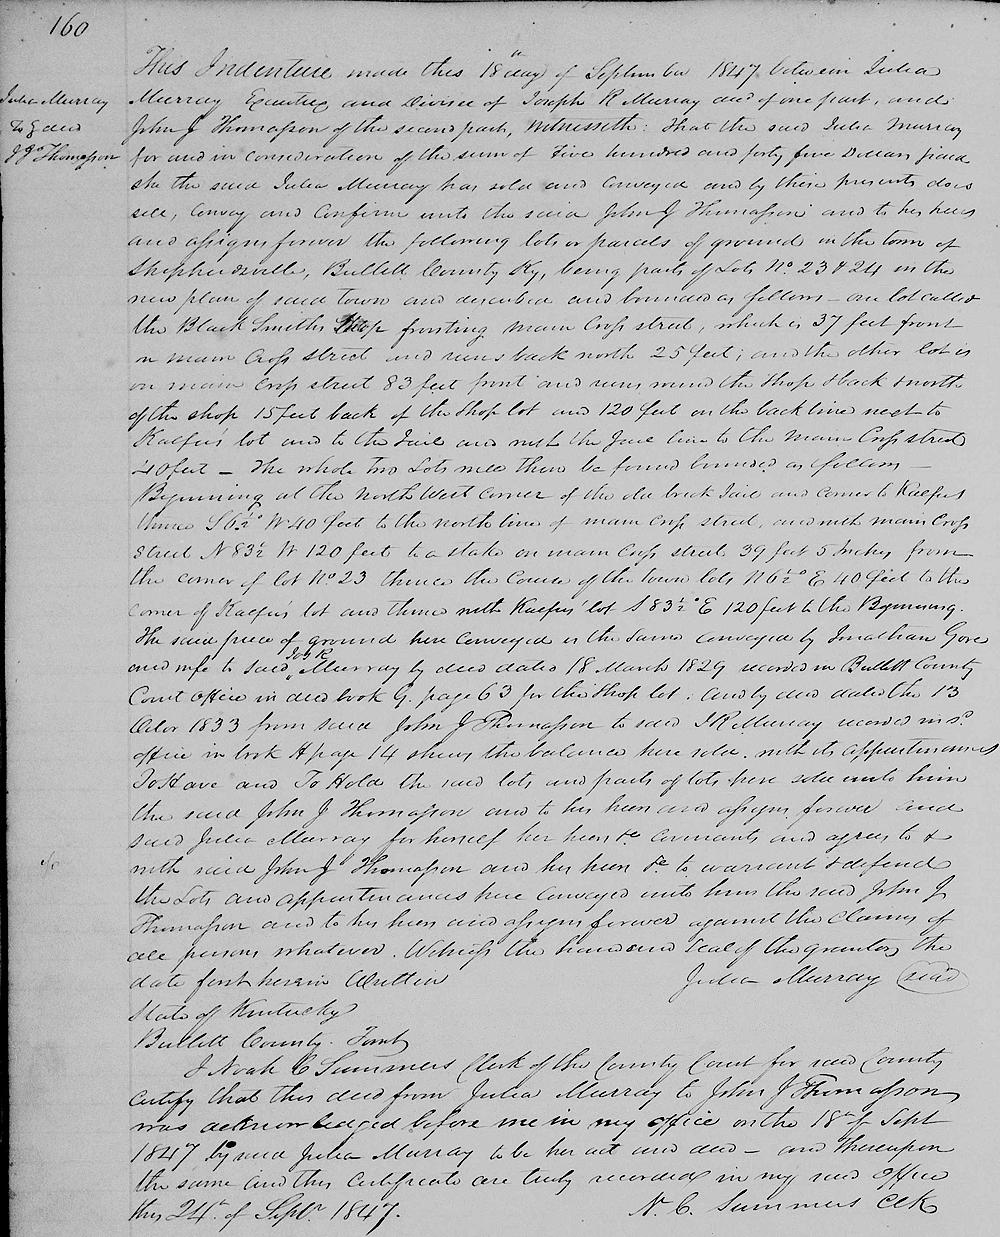 160
Julia Murray
To } deed
J J Thomasson
This Indenture made this 18th day of September 1847 between Julia
Murray Executrix and Devisee of Joseph R Murray decd of one part, and
John J Thomasson of the second part, Witnesseth: That the said Julia Murray
for and in consideration of the sum of Five hundred and forty five Dollars paid
she the said Julia Murray has sold and conveyed and by these presents does
sell, convey and confirm unto the said John J Thomasson and to his heirs
and assigns forever the following lots or parcels of ground in the town of
Shepherdsville, Bullett County Ky, being parts of Lots No. 23 & 24 in the
new plan of said town and described and bounded as follows - one lot called
the Black Smiths Shop fronting main Cross street, which is 37 feet front
on main Cross street and runs back north 25 feet; and the other lot is
on main Cross street 83 feet front and runs round the shop & back & north
of the shop 15 feet back of the Shop lot and 120 feet on the back line next to
Kalfus' lot and to the Jail and with the Jail line to the Main Cross street
40 feet - The whole two Lots will then be found bounded as follows -
Beginning at the North West corner of the old brick Jail and corner to Kalfus
thence S 6½° W 40 feet to the north line of main Cross street, and with main Cross
street N 83½ W 120 feet to a stake on main Cross street 39 feet 5 Inches from
the corner of lot No. 23 thence the Course of the town lots N 6½° E 40 feet to the
corner of Kalfus' lot and thence with Kalfus' lot S 83½° E 120 feet to the Beginning.
The said piece of ground here conveyed is the same conveyed by Jonathan Gore
and wife to said Jos R Murray by deed dated 18 March 1829 recorded in Bullett County
Court office in deed book G. page 63 for the Shop lot; and by deed dated the 13
Octor 1833 from said John J Thomasson to said J R Murray recorded in sd.
office in book H page 14 shews the balance here sold. with its appurtenances
To Have and To Hold the said lots and parts of lots here sold unto him
the said John J Thomasson and to his heirs and assigns forever and
said Julia Murray for herself her heirs &c covenants and agrees to &
with said John J Thomasson and his heirs &c to warrant & defend
the Lots and appurtenances here conveyed unto him the said John J
Thomasson and to his heirs and assigns forever against the Claims of
all persons whatever. Witness the hand and seal of the grantor the
date first herein Written Julia Murray (seal)
State of Kentucky
Bullett County. Towit
I Noah C Summers Clerk of the County Court for said County
certify that this deed from Julia Murray to John J Thomasson
was acknowledged before me in my office on the 18th of Sept
1847 by said Julia Murray to be her act and deed - and thereupon
the same and this Certificate are truly recorded in my said office
this 24th of Septr. 1847. N. C. Summers Clk